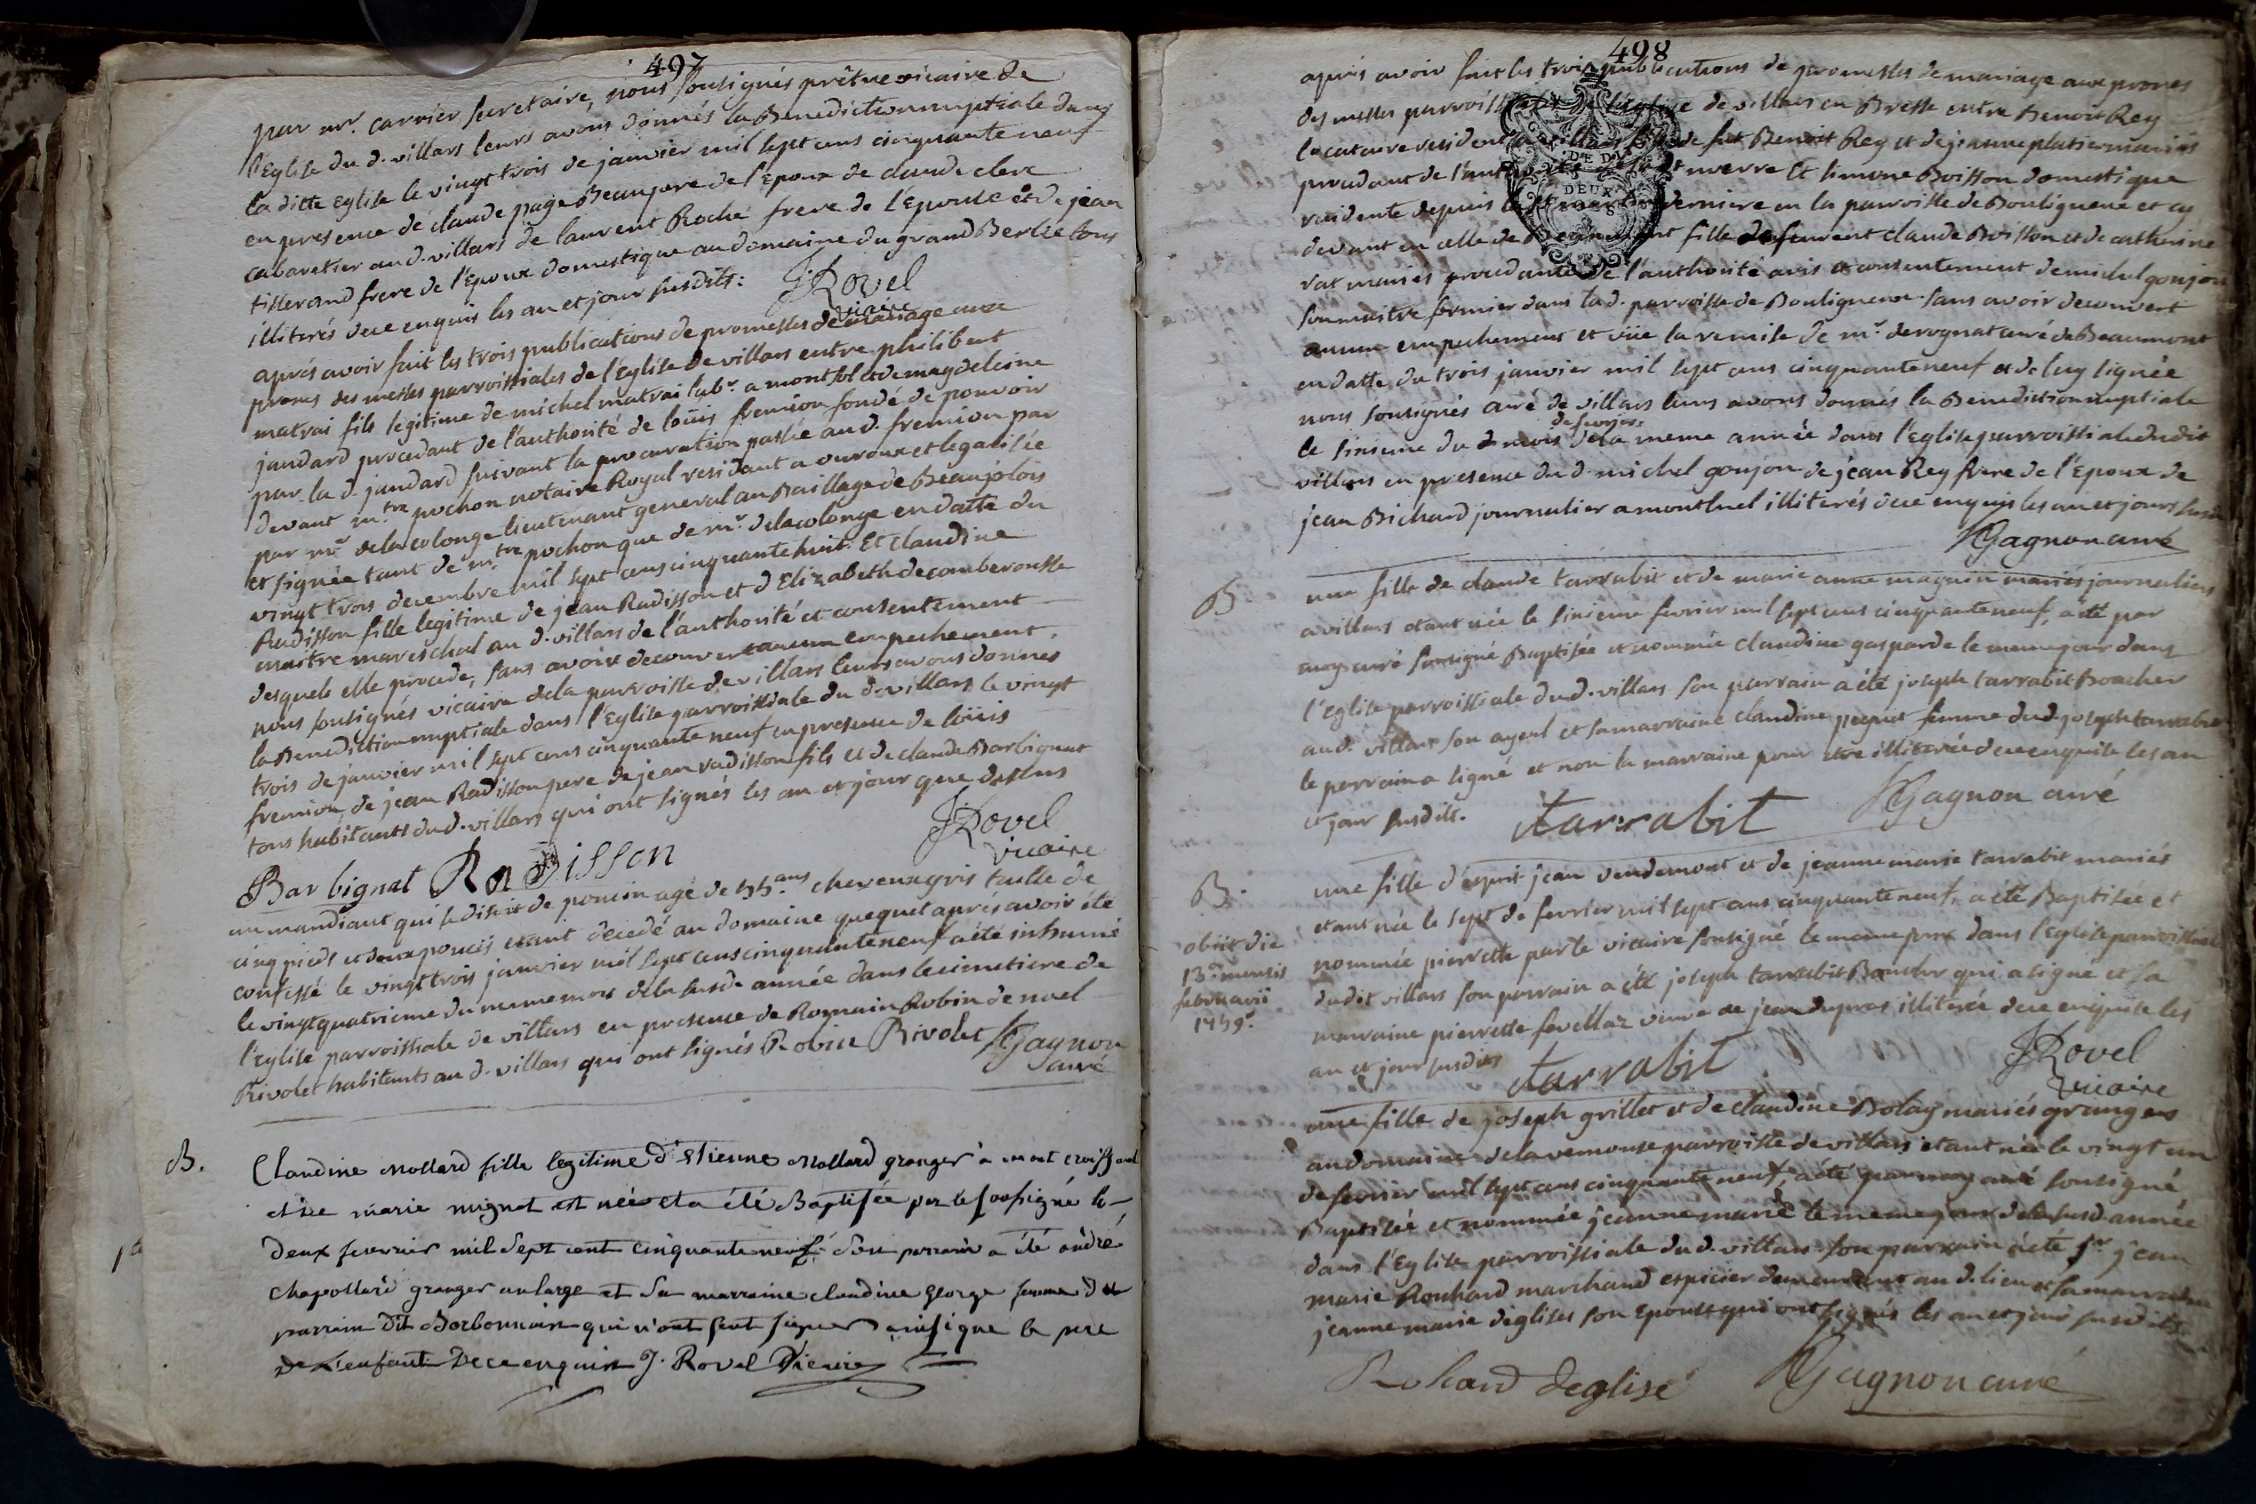 497
par mr. carrier secretaire, nous soussignés prêtre vicaire de
l'Eglise du d. villars leurs avons donnés la Benediction nuptiale dans
la ditte Eglise le vingt trois de janvier mil sept cens cinquante neuf
en presence de claude page Beaupere de l'Epoux de claude clerc
cabaretier au d. villars de laurent Roché frere de l'Epouse et de jean
tisserand frere de l'Epoux domestique au domaine du grand Berlie tous
illiterés de ce enquis les an et jour susdits: JRovel
vicaire
aprés avoir fait les trois publications de promesses de mariage aux
prones des messes parroissiales de l'Eglise de villars entre philibert
matrai fils legitime de michel matrai labr. a montsol et de magdeleine
jandard procedant de l'authorité de loüis fremion fondé de pouvoir
par la d. jandard suivant la procuration passée au d. fremion par
devant mtre pochon notaire Royal residant a ouroux et legalisée
par mr. delacolonge lieutenant general au Baillage de Beaujolois
et signée tant de mtre pochon que de mr. delacolonge en datte du
vingt trois decembre mil sept cens cinquante huit. Et claudine
Radisson fille legitime de jean Radisson et d'Elizabeth decomberousse
maitre mareschal au d. villars de l'authorité et consentement
desquels elle procede, sans avoir decouvert aucun empechement,
nous soussignés vicaire dela parroisse de villars leurs avons donnés
la Benediction nuptiale dans l'Eglise parroissiale du d. villars le vingt
trois de janvier mil sept cens cinquante neuf en presence de loüis
fremion, de jean Radisson pere de jean radisson fils et de claude Barbignat
tous habitants du d. villars qui ont signés les an et jour que dessus
JRovel
vicaire
Barbignat Radisson
un mandiant qui se disoit de poncin agé de 55 ans cheveux gris taille de
cinq pieds et deux pouces etant decedé au domaine quequet apres avoir été
confessé le vingt trois janvier mil sept cens cinquante neuf a été inhumé
le vingt quatrieme du meme mois dela susd. année dans le cimetiere de
l'Eglise parroissiale de villars en presence de Romain Robin de noel
Rivolet habitants au d. villars qui ont signés Robin Rivolet Gagnon
curé
B. Claudine Mollard fille legitime d'Etienne Mollard granger à mont croissand
et de marie mignot est née et a été Baptisée par le soussigné le
deux fevrier mil Sept cent cinquante neuf. Son parrain a été andré
chapollard granger au large et Sa marraine claudine George femme du
parrain dit Borbonnoin qui n'ont seut signer ainsi que le pere
de l'enfant De ce enquis J. Rovel Vicaire
498
aprés avoir fait les trois publications de promesses de mariage aux prones
des messes parroissiales de l'Eglise de villars en Bresse entre Benoit Rey
locataire resident a villars fils de feu Benoit Rey et de jeanne platier mariés
procedant de l'authorité Et simone Boisson domestique
residente depuis la st martin derniere en la parroisse de Bouligneux et cy
devant en celle de Beaumont fille de feurent claude Boisson et de catherine
rat mariés procedante de l'authorité avis et consentement de michel goujon
son maitre fermier dans lad. parroisse de Bouligneux sans avoir decouvert
aucun empechement et vüe la remise de mr. derognat curé de Beaumont
en datte du trois janvier mil sept cens cinquante neuf et de luy signée
nous soussignés curé de villars leurs avons donnés la Benediction nuptiale
le sixieme du d. mois de fevrier de la meme année dans l'Eglise parroissiale dudit
villars en presence du d. michel goujon de jean Rey frere de l'Epoux de
jean Bichard journalier a montluel illiterés de ce enquis les an et jours susd.
Gagnon curé
B. une fille de claude tarrabit et de marie anne magnin mariés journaliers
a villars etant née le sixieme fevrier mil sept cens cinquante neuf, a été par
moy curé soussigné Baptisée et nommée claudine gasparde le meme jour dans
l'Eglise parroissiale dud. villars son parrain a été joseph tarrabit Boucher
aud. villars son ayeul et sa marraine claudine pequet femme dud. joseph tarrabit
le parrain a signé et non la marraine pour etre illiterée de ce enquise les an
et jour susdits. tarrabit Gagnon curé
B. une fille d'esprit jean vendemont et de jeanne marie tarrabit mariés
etant née le sept de fevrier mil sept cens cinquante neuf, a été Baptisée et
nommée pierrette par le vicaire soussigné le meme jour dans l'Eglise parroissiale
dudit villars son parrain a été joseph tarrabit Boucher qui a signé et sa
marraine pierrette fevellaz veuve de jean dupras illiterée de ce enquise les
an et jour susdits tarrabit JRovel
vicaire
obiit die
13a mensis
februarii
1759.
une fille de joseph grillet et de claudine Bolay mariés grangers
au domaine de la vernouse parroisse de villars etant née le vingt un
de fevrier mil sept cens cinquante neuf, a été par moy curé soussigné
Baptisée et nommée jeanne marie le meme jour de la susd. année
dans l'Eglise parroissiale dud. villars son parrain a été sr. jean
marie Rouhard marchand espicier demeurant au d. lieu et sa marraine
jeanne marie d'eglises son epouse qui ont signés les an et jour susdits.
Rohard deglise Gagnon curé